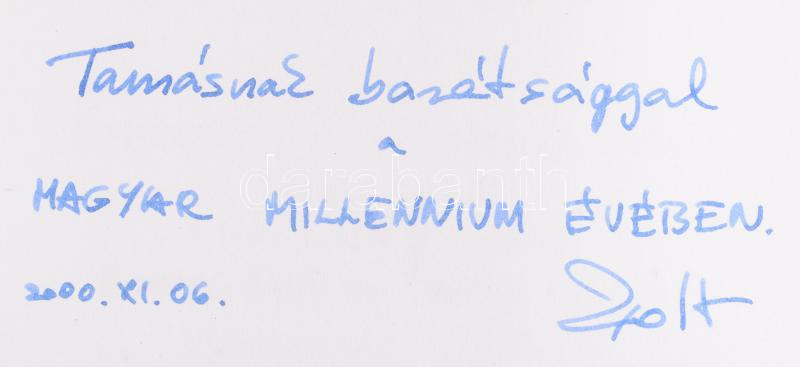 Tamásnak barátsággal
a
MAGYAR MILLENNIUM ÉVÉBEN.
darabanth
2000. XI. 06.
Zsolt